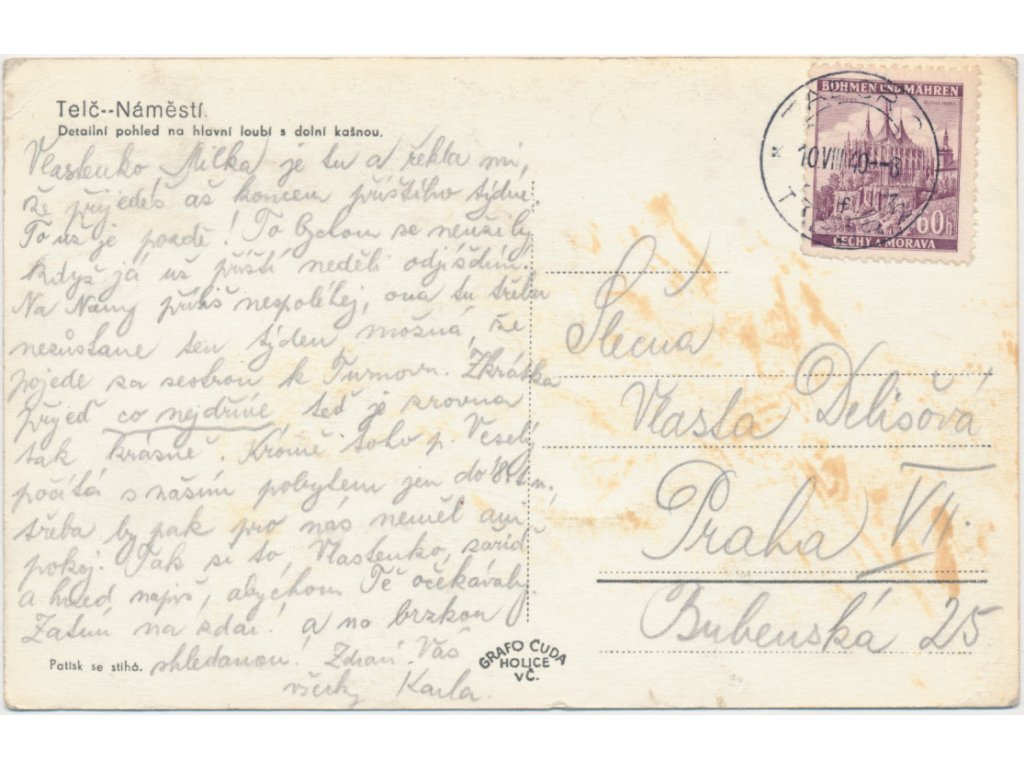 Telč--Náměstí.
Detailní pohled na hlavní loubí s dolní kašnou.
Vlastenko Milka je tu a řekla mi,
že přijedeš až koncem příštího týdne.
To už je pozdě! To bychom se neužily
když já už příští neděli odjíždím.
Na Námy příliš nespoléhej, ona tu třeba
nezůstane ten týden, možná, že
pojede za sestrou k Turnovu. Zkrátka
přijeď co nejdříve teď je zrovna
tak krásně. Kromě toho p. Veselý
počítá s naším pobytem jen do
třeba by pak pro nás neměl ani
pokoj. Tak si to, Vlastenko, zařiď
a hned napiš, abychom Tě očekávaly.
Zatím na zdar! a na brzkou
shledanou! Zdraví Vás
všecky Karla.
Patisk se stíhá.
GRAFO ČUDA
HOLICE
VČ.
BÖHMEN UND MÄHREN
60h
ČECHY A MORAVA
TABOR
10 VIII 40--8
Slečna
Vlasta Delišová
Praha VII.
Bubenská 25